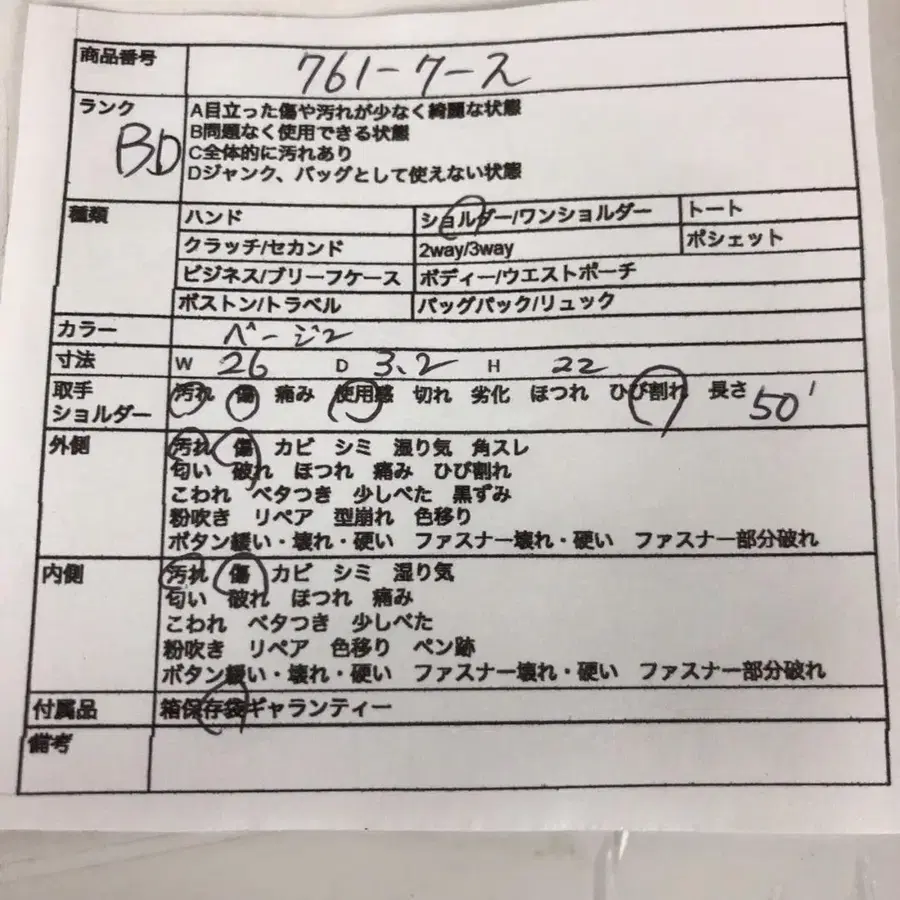 商品番号 761-ケース
ランク BD
A目立った傷や汚れが少なく綺麗な状態
B問題なく使用できる状態
C全体的に汚れあり
Dジャンク、バッグとして使えない状態
種類 ハンド ショルダー/ワンショルダー トート
クラッチ/セカンド 2way/3way ポシェット
ビジネス/ブリーフケース ボディー/ウエストポーチ
ボストン/トラベル バックパック/リュック
カラー ベージュ
寸法 W 26 D 3.2 H 22
取手 汚れ 傷 痛み 使用感 切れ 劣化 ほつれ ひび割れ 長さ 50
ショルダー
外側 汚れ 傷 カビ シミ 湿り気 角スレ
匂い 破れ ほつれ 痛み ひび割れ
こわれ ベタつき 少しべた 黒ずみ
粉吹き リペア 型崩れ 色移り
ボタン緩い・壊れ・硬い ファスナー壊れ・硬い ファスナー部分破れ
内側 汚れ 傷 カビ シミ 湿り気
匂い 破れ ほつれ 痛み
こわれ ベタつき 少しべた
粉吹き リペア 色移り ペン跡
ボタン緩い・壊れ・硬い ファスナー壊れ・硬い ファスナー部分破れ
付属品 箱保存袋ギャランティー
備考